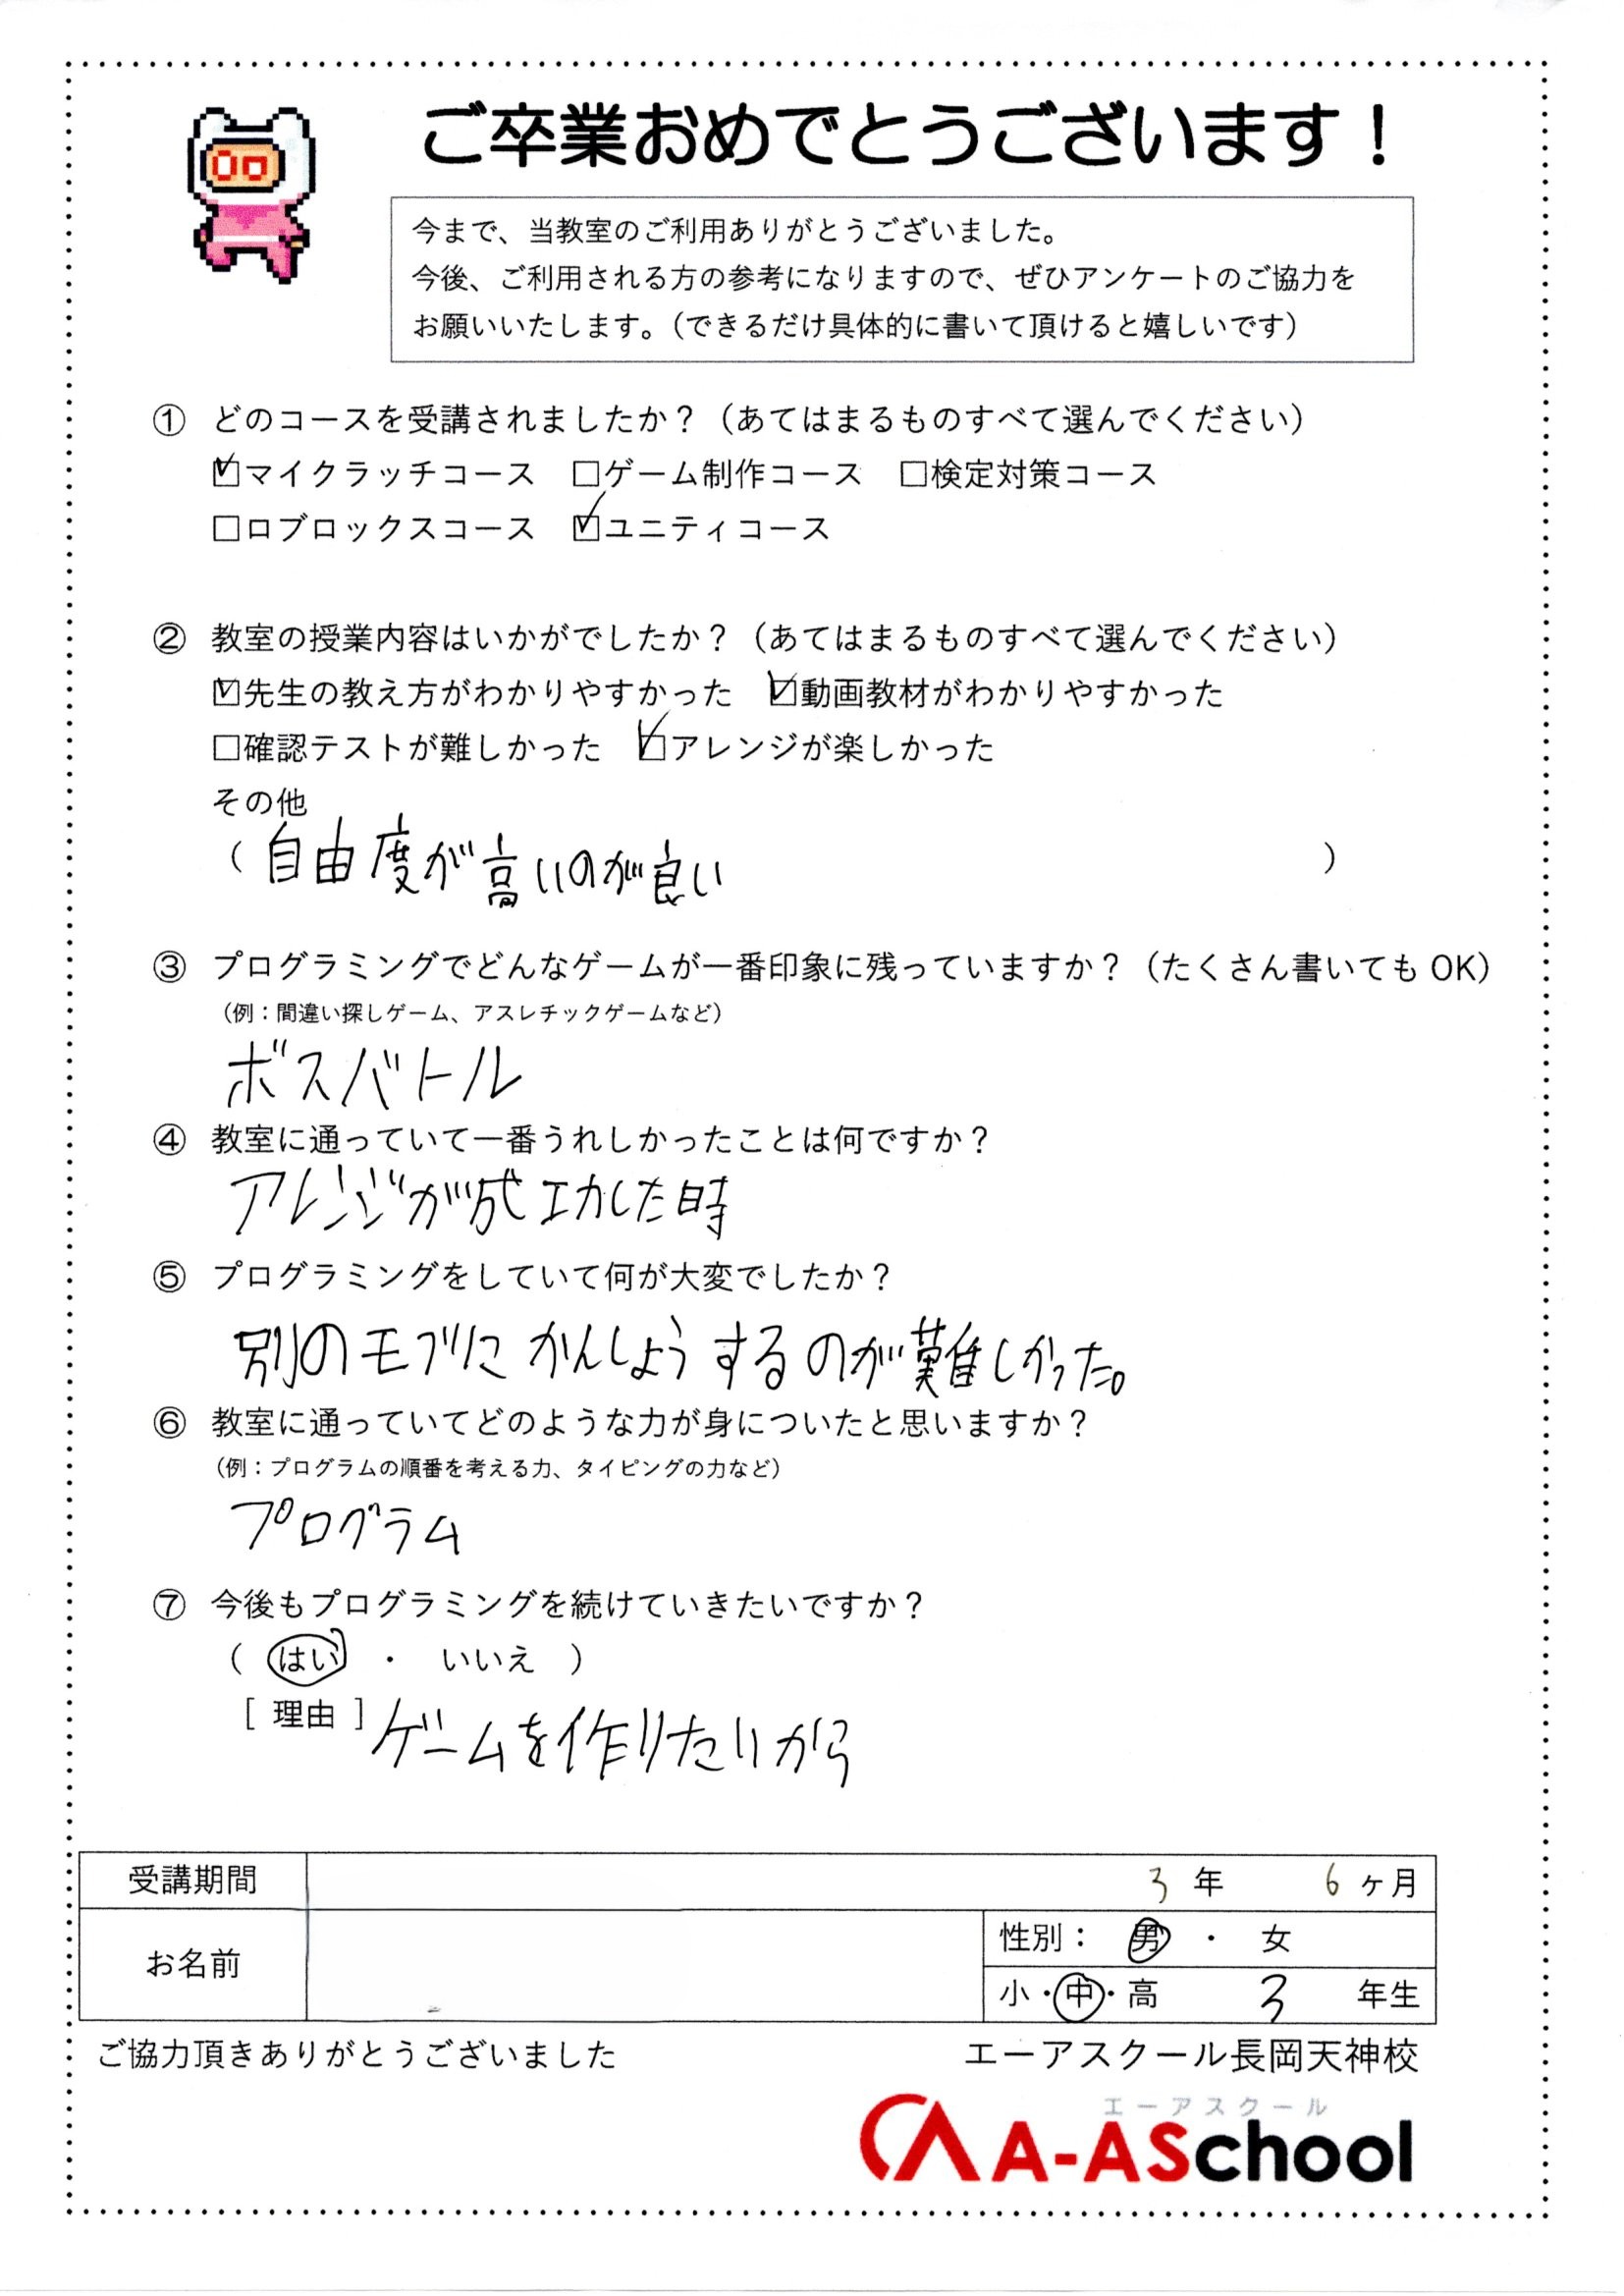 ご卒業おめでとうございます！
今まで、当教室のご利用ありがとうございました。
今後、ご利用される方の参考になりますので、ぜひアンケートのご協力を
お願いいたします。（できるだけ具体的に書いて頂けると嬉しいです）
① どのコースを受講されましたか？（あてはまるものすべて選んでください）
☑マイクラッチコース □ゲーム制作コース □検定対策コース
□ロブロックスコース ☑ユニティコース
② 教室の授業内容はいかがでしたか？（あてはまるものすべて選んでください）
☑先生の教え方がわかりやすかった ☑動画教材がわかりやすかった
□確認テストが難しかった ☑アレンジが楽しかった
その他
（自由度が高いのが良い ）
③ プログラミングでどんなゲームが一番印象に残っていますか？（たくさん書いてもOK）
（例：間違い探しゲーム、アスレチックゲームなど）
ボスバトル
④ 教室に通っていて一番うれしかったことは何ですか？
アレンジが成功した時
⑤ プログラミングをしていて何が大変でしたか？
別のモブにかんしょうするのが難しかった。
⑥ 教室に通っていてどのような力が身についたと思いますか？
（例：プログラムの順番を考える力、タイピングの力など）
プログラム
⑦ 今後もプログラミングを続けていきたいですか？
（ はい ・ いいえ ）
[ 理由 ] ゲームを作りたいから
受講期間 3 年 6 ヶ月
お名前 性別： 男 ・ 女
小・中・高 3 年生
ご協力頂きありがとうございました エーアスクール長岡天神校
エーアスクール
A-ASchool